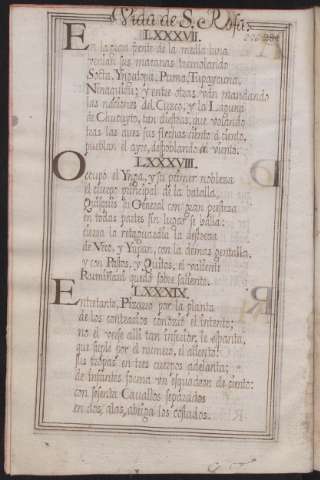 Vida de S. Rosa;
LXXXVII.
En la gran frente de la media luna
venian sus macanas tremolando
Socta, Yngalopa, Puma, Tupaycuna,
Ninaquiru; y entre otras van mandando
las naciones del Cuzco; y la Laguna
de Chucuyto, tan diestras, que volando
tras las aves sus flechas ciento à ciento,
pueblan el ayre, despoblando el viento.
LXXXVIII.
Ocupò el Ynga, y su primer nobleza
el cuerpo principal de la batalla.
Quisquis su General con gran presteza
en todas partes sin lugar se halla:
cierra la retaguardia la destreza
de Urco, y Yupan, con la demas gentalla,
y con Paltas, y Quitos, el valiente
Rumiñaui quedò sobresaliente.
LXXXIX.
Entretanto, Pizarro por la planta
de los contrarios conociò el intento;
no el verse alli tan inferior, le espanta,
que suple por el numero, el aliento:
sus tropas en tres cuerpos adelanta;
de infantes forma un esquadron de ciento:
con sesenta Cavallos separados
en dos, alas, abriga los costados.